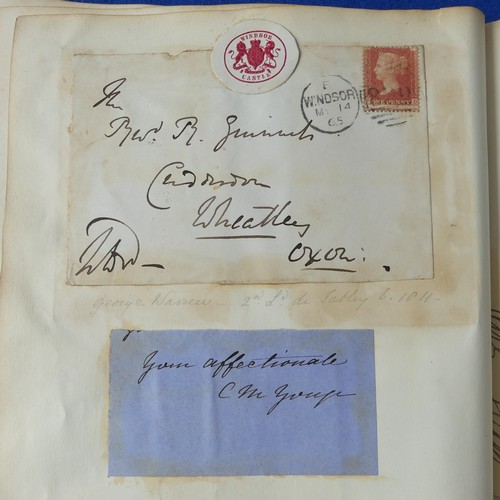 WINDSOR
CASTLE
WINDSOR
MY 14
65
The
Revd. R.
Cuddesdon
Wheatley
Oxon:
George Warren 2nd Ld de Tabley b. 1811
Your affectionate
C M Yonge